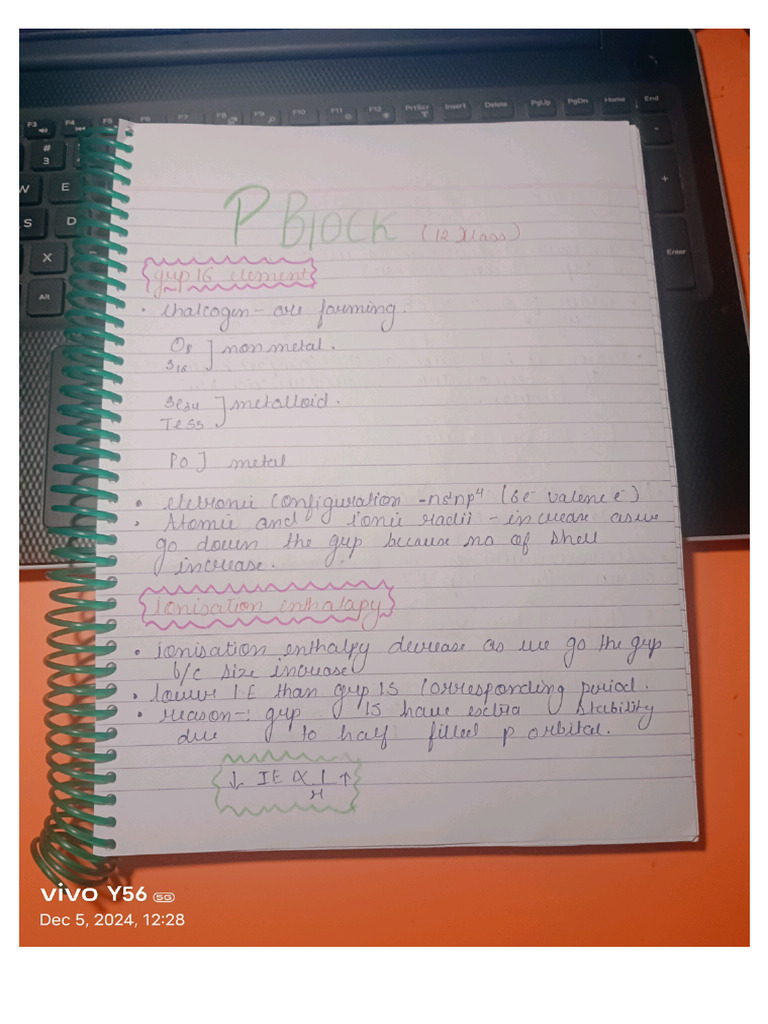 P Block (12 Class)
grup 16 element
• Chalcogen - ore forming.
O8 ] non metal.
S16
Se34 ] metalloid.
Te52
Po ] metal
• eletronic Configuration - ns²np⁴ (6e⁻ valence)
• Atomic and ionic radii - increase as we
go down the grup because no of shell
increase.
ionisation inthalapy
• ionisation enthalpy decrease as we go the grup
b/c size increase
• lower I.E than grup 15 Corresponding period.
• reason -: grup 15 have extra stability
due to half filled p orbital.
↓ IE ∝ 1 ↑
r
F3
F4
F5
F6
F7
F8
F9
F10
F11
F12
PrtScr
Insert
Delete
PgUp
PgDn
Home
End
#
3
W
E
S
D
X
Alt
-
+
Enter
vivo Y56 5G
Dec 5, 2024, 12:28